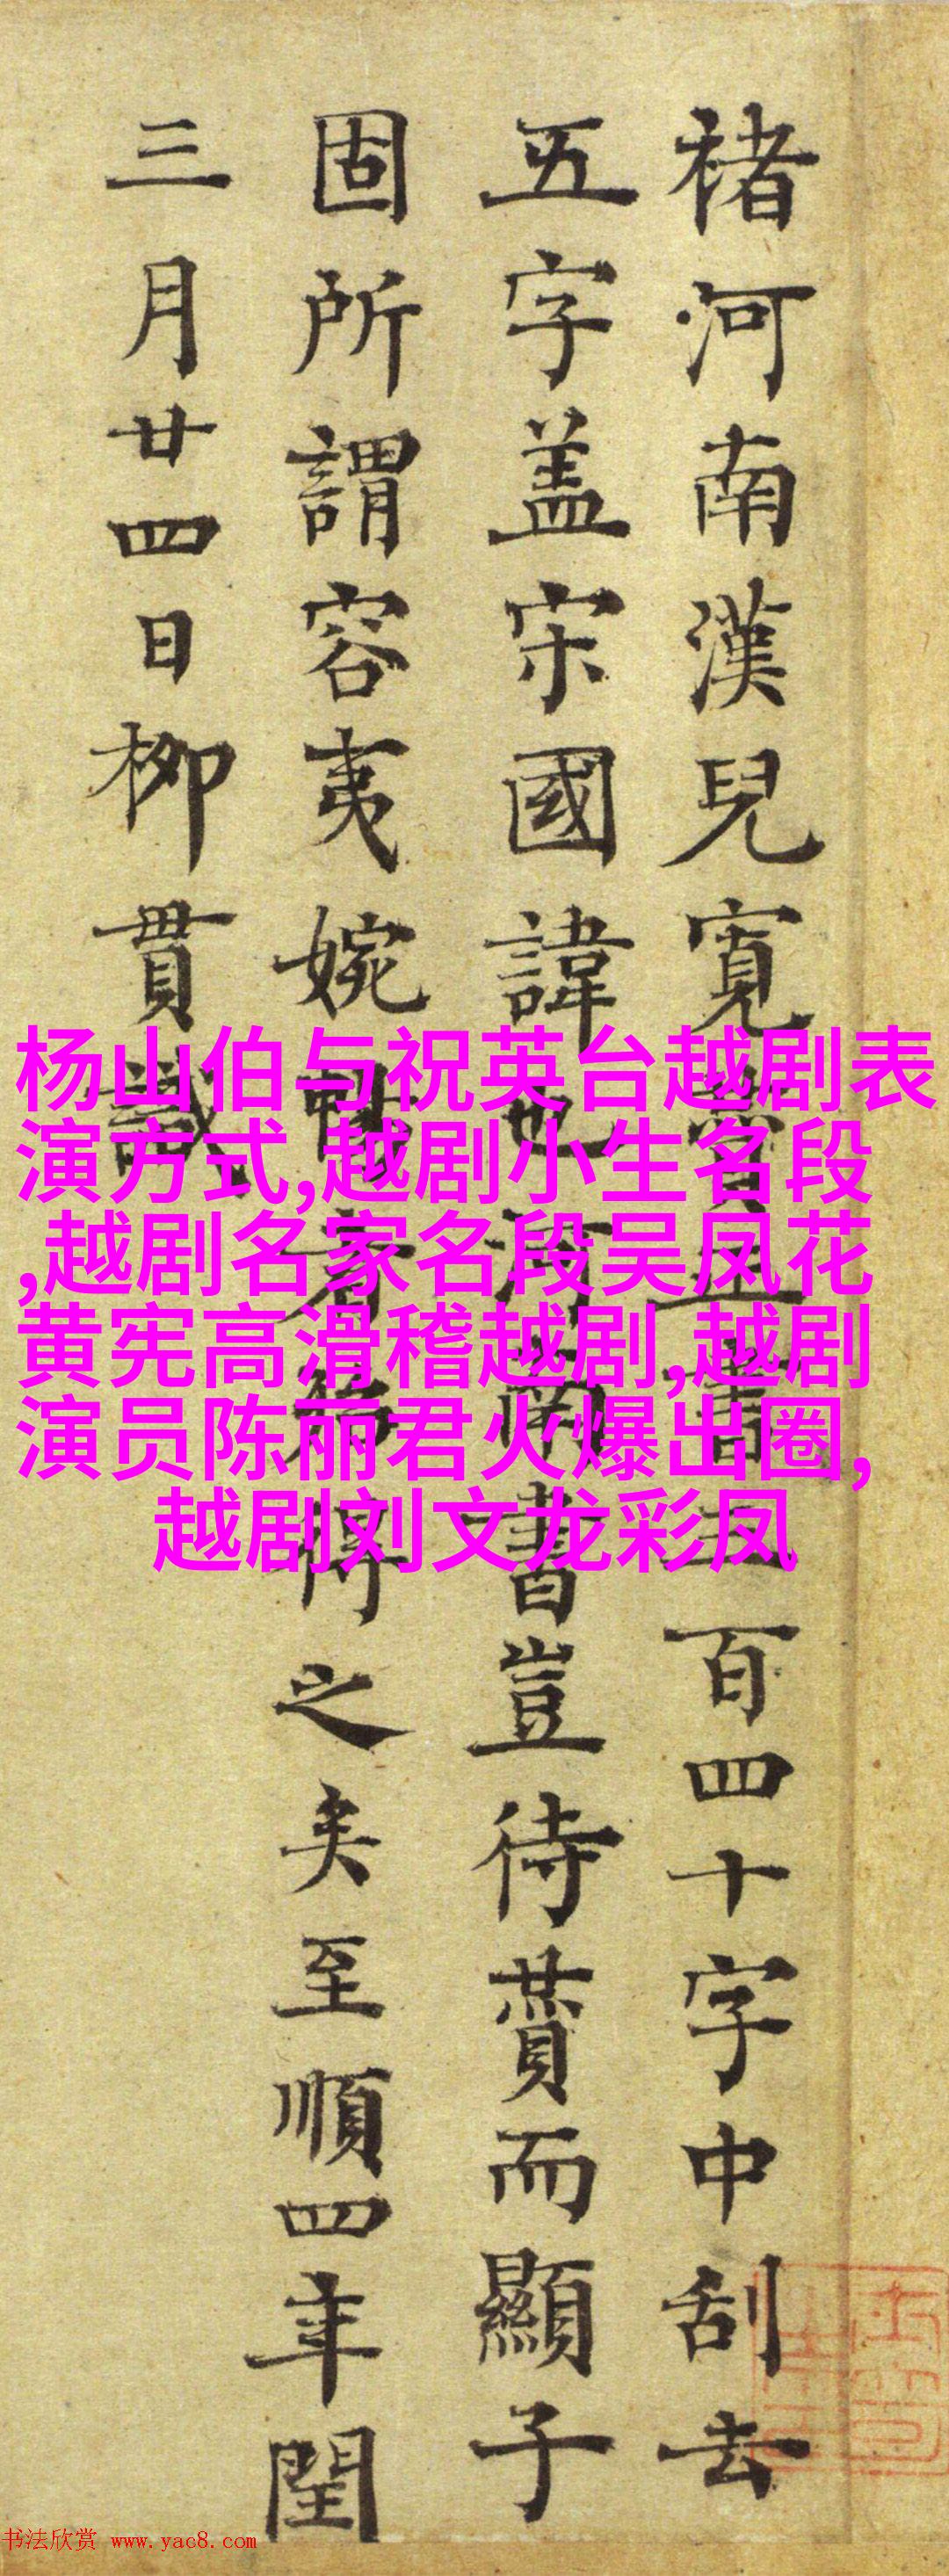 褚河南漢兒寬書三百四十字中刮去
五字盖宋國諱也河南書豈待賛而顯子
固所謂容夷婉暢者得之矣至順四年閏
三月廿四日柳貫識
杨山伯与祝英台越剧表
演方式,越剧小生名段
,越剧名家名段吴凤花
黄宪高滑稽越剧,越剧
演员陈丽君火爆出圈,
越剧刘文龙彩凤
书法欣赏 www.yac8.com